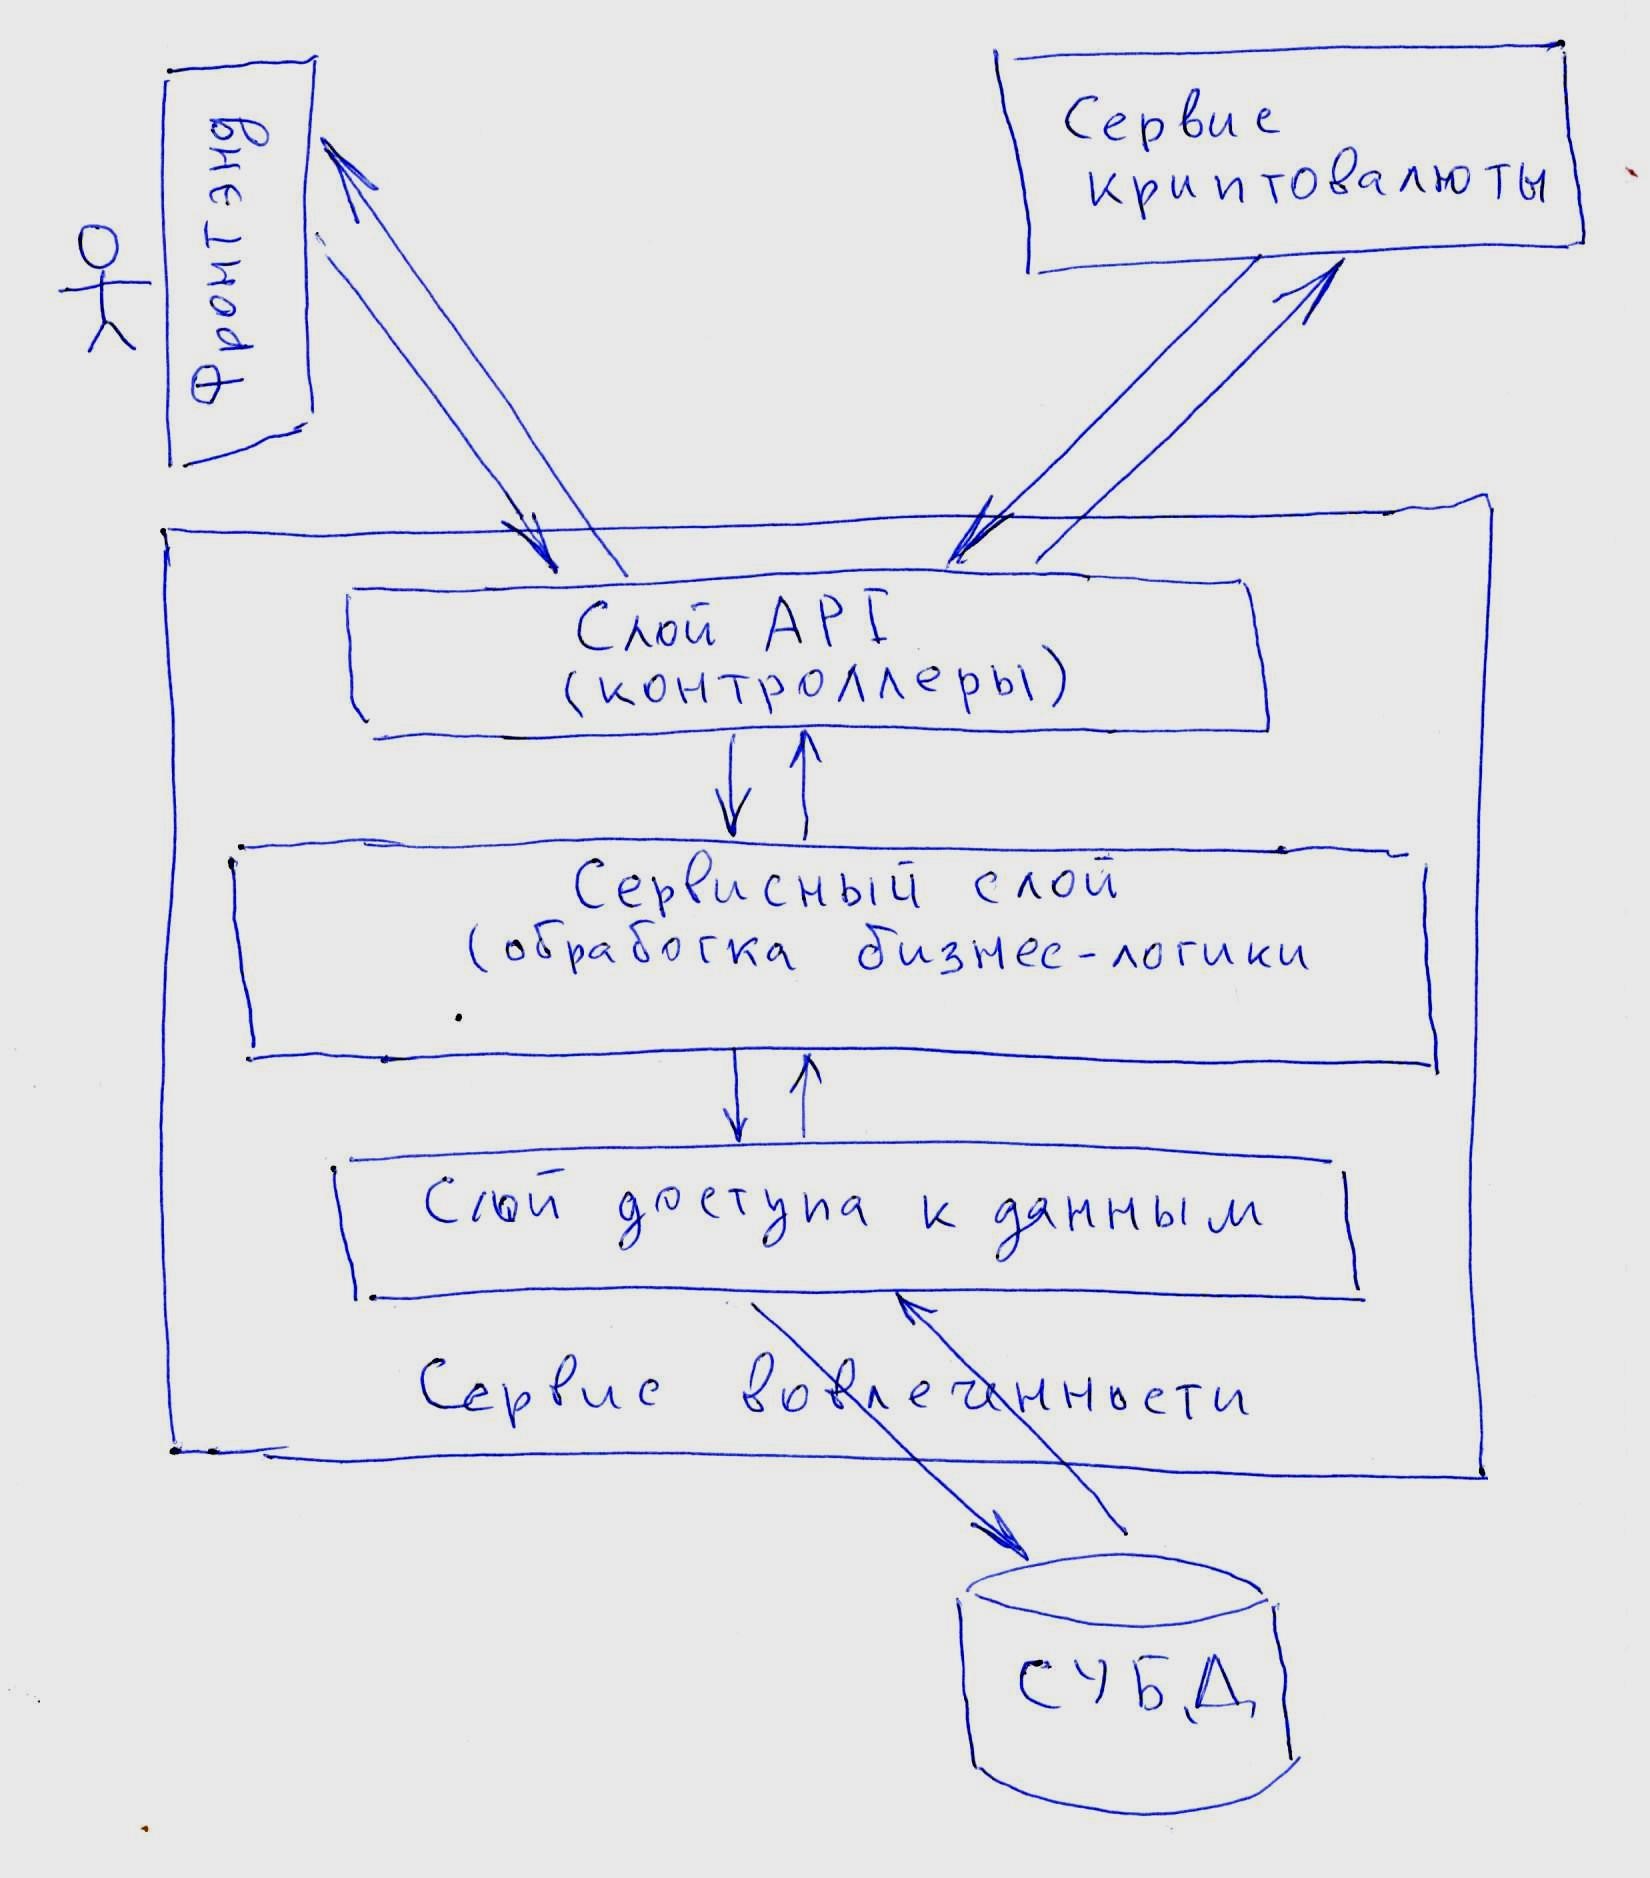 Фронтэнд
Сервис
криптовалюты
Слой API
(контроллеры)
Сервисный слой
(обработка бизнес-логики
Слой доступа к данным
Сервис вовлечённости
СУБД